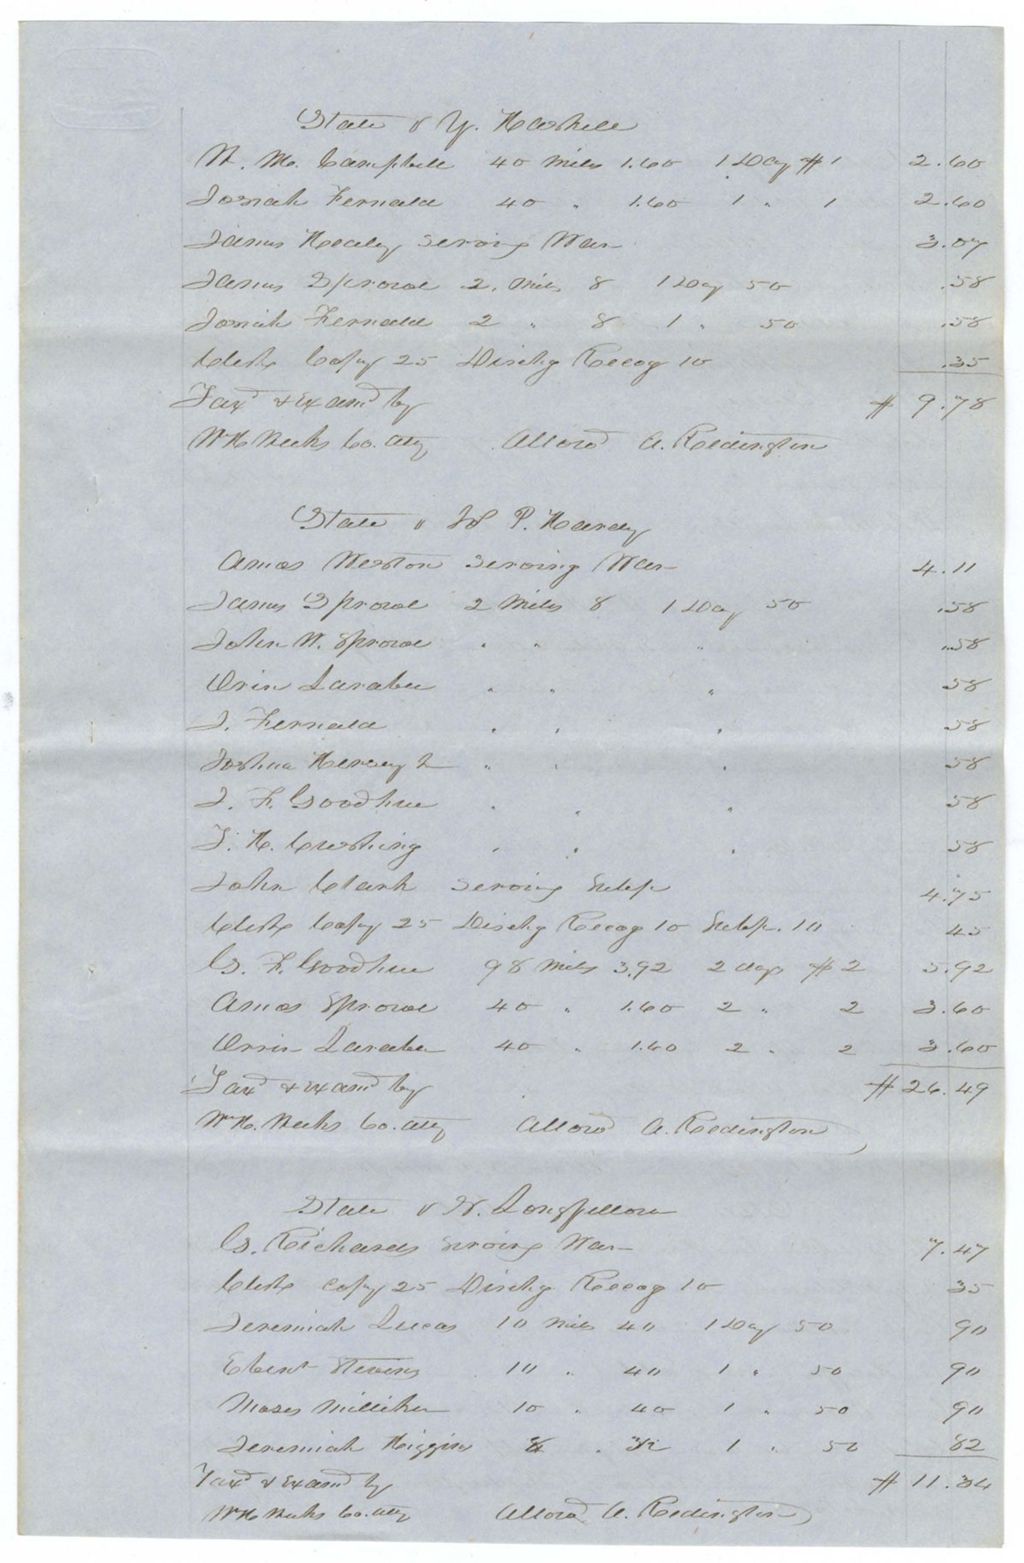 State v Y. Haskell
N. M. Campbell 40 miles 1.60 1 Day $1 2.60
Josiah Fernald 40 " 1.60 1 " 1 2.60
James Healey serving War 3.07
James Sprowl 2 miles 8 1 Day 50 .58
Josiah Fernald 2 " 8 1 " 50 .58
Clerks Copy 25 Dischg Recog 10 .35
Taxd & Examd by $ 9.78
Wm H. Meeks Co. Atty Allowd A. Redington
State v P. Hardy
Amos Weston serving War 4.11
James Sprowl 2 miles 8 1 Day 50 .58
John N. Sprowl " " " .58
Orin Larabee " " " 58
J. Fernald " " " 58
Joshua Hervey 2 " " " 58
J. F. Goodhue " " " 58
T. H. Cushing " " " 58
John Clark serving Subp 4.75
Clerks Copy 25 Dischg Recog 10 Subp. 10 45
G. F. Goodhue 98 miles 3.92 2 days $2 5.92
Amos Sprowl 40 " 1.60 2 " 2 3.60
Orrin Larabee 40 " 1.60 2 " 2 3.60
Taxd & Examd by $ 26.49
Wm H. Meeks Co. Atty Allowd A. Redington
State v N. Longfellow
G. Richards serving War 7.47
Clerks copy 25 Dischg Recog 10 35
Jeremiah Lucas 10 miles 40 1 Day 50 90
Ebent Stevens 10 " 40 1 " 50 90
Moses Milliken 10 " 40 1 " 50 90
Jeremiah Higgins 8 " 32 1 " 50 82
Taxd & Examd by $ 11.34
Wm H Meeks Co. Atty Allowd A. Redington